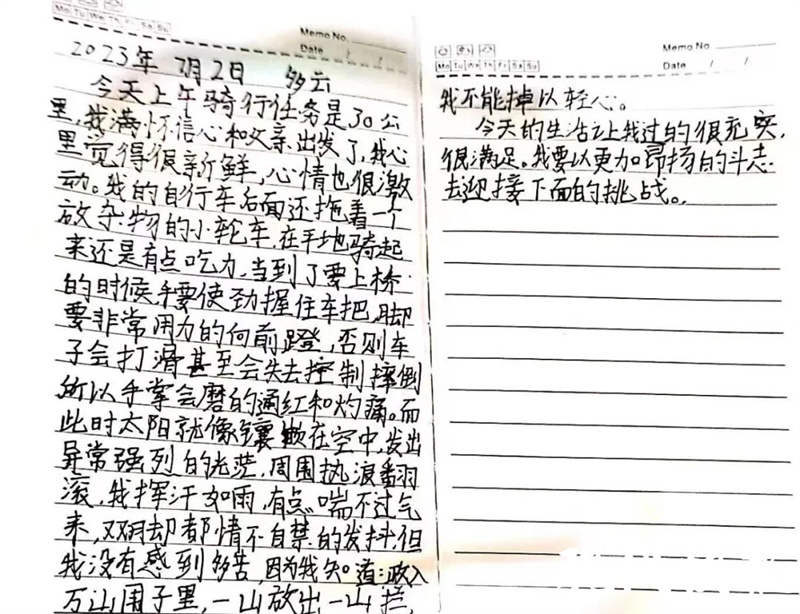 Mo Tu We Th Fr Sa Su
Memo No.
Date / /
2023年 7月2日 多云
今天上午骑行任务是30公
里,我满怀信心和父亲出发了,我心
里觉得很新鲜,心情也很激
动。我的自行车后面还拖着一个
放杂物的小轮车,在平地骑起
来还是有点吃力,当到了要上桥
的时候手要使劲握住车把,脚
要非常用力的向前蹬,否则车
子会打滑甚至会失去控制摔倒
所以手掌会磨的通红和灼痛。而
此时太阳就像镶嵌在空中,发出
异常强烈的光茫,周围热浪翻
滚,我挥汗如雨,有点喘不过气
来,双脚却都情不自禁的发抖,但
我没有感到多苦,因为我知道:政入
万山围子里,一山放出一山拦,
Memo No.
Date / /
Mo Tu We Th Fr Sa Su
我不能掉以轻心。
今天的生活让我过的很充实,
很满足。我要以更加昂扬的斗志
去迎接下面的挑战。